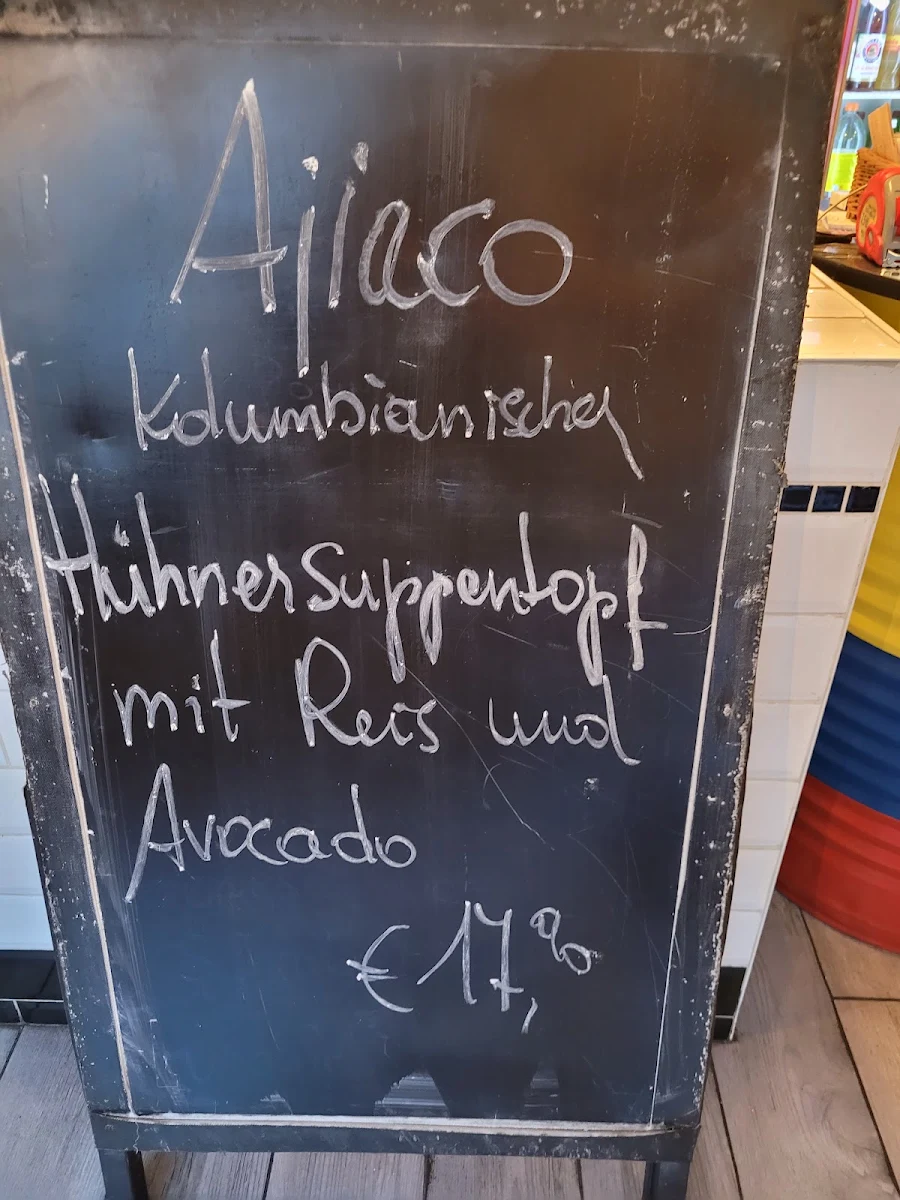 Ajiaco
Kolumbianischer
Hühnersuppentopf
mit Reis und
Avocado
€17,90